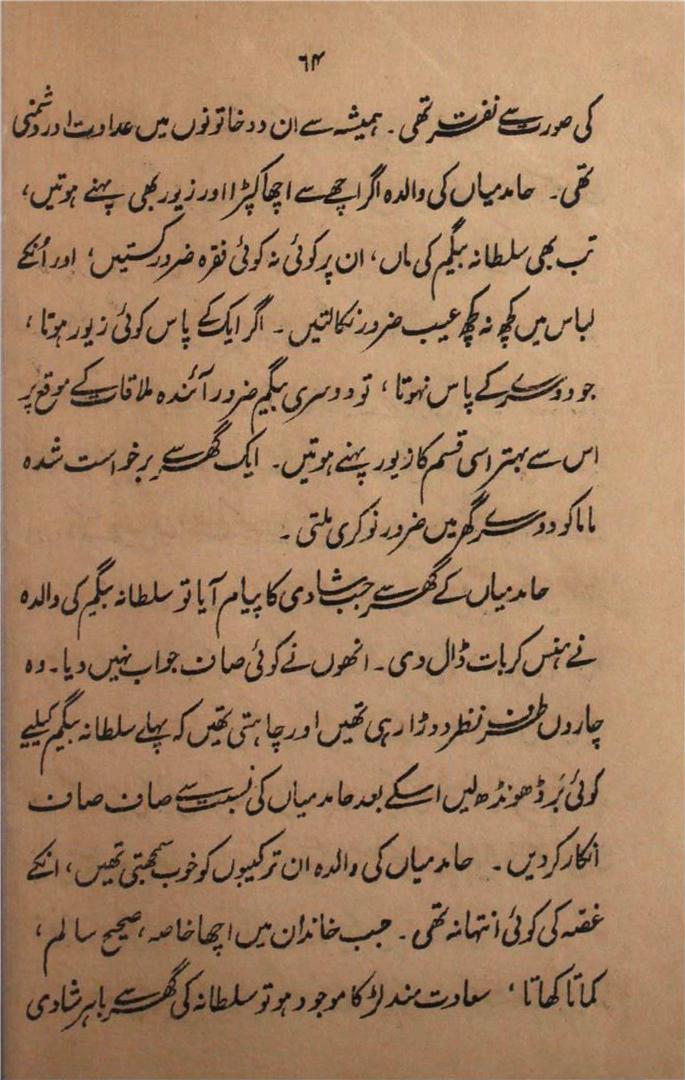 ۶۴
کی صورت سے نفرت تھی۔ ہمیشہ سے ان دو خاتونوں میں عداوت اور دشمنی
تھی۔ حامد میاں کی والدہ اگر اچھے سے اچھا کپڑا اور زیور بھی پہنے ہوتیں،
تب بھی سلطانہ بیگم کی ماں، ان پر کوئی نہ کوئی فقرہ ضرور کستیں، اور اُنکے
لباس میں کچھ نہ کچھ عیب ضرور نکالتیں۔ اگر ایک کے پاس کوئی زیور ہوتا،
جو دوسرے کے پاس نہوتا، تو دوسری بیگم ضرور آئندہ ملاقات کے موقع پر
اس سے بہتر اسی قسم کا زیور پہنے ہوتیں۔ ایک گھر سے برخواست شدہ
ماما کو دوسرے گھر میں ضرور نوکری ملتی۔
حامد میاں کے گھر سے جب شادی کا پیام آیا تو سلطانہ بیگم کی والدہ
نے ہنس کر بات ڈال دی۔ انھوں نے کوئی صاف جواب نہیں دیا۔ وہ
چاروں طرف نظر دوڑا رہی تھیں اور چاہتی تھیں کہ پہلے سلطانہ بیگم کیلیے
کوئی بَر ڈھونڈھ لیں اسکے بعد حامد میاں کی نسبت سے صاف صاف
انکار کردیں۔ حامد میاں کی والدہ ان ترکیبوں کو خوب سمجھتی تھیں، انکے
غصہ کی کوئی انتہا نہ تھی۔ جب خاندان میں اچھا خاصہ، صحیح سالم،
کماتا کھاتا، سعادت مند لڑکا موجود ہو تو سلطانہ کی گھر سے باہر شادی